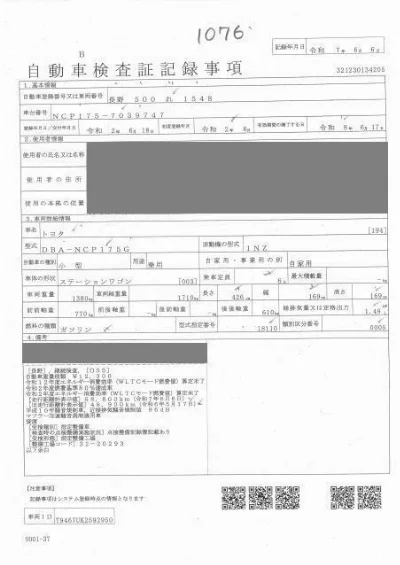 1076
B
記録年月日 令和 7年 6月 6日
自動車検査証記録事項
321230134205
1.基本情報
自動車登録番号又は車両番号 長野 500 れ 1548
車台番号 NCP175-7039747
登録年月日/交付年月日 令和 2年 6月18日 初度登録年月 令和 2年 6月 有効期間の満了する日 令和 9年 6月17日
2.使用者情報
使用者の氏名又は名称
使用者の住所
使用の本拠の位置
3.車両詳細情報
車名 トヨタ [194]
型式 DBA-NCP175G 原動機の型式 1NZ
自動車の種別 小型 用途 乗用 自家用・事業用の別 自家用
車体の形状 ステーションワゴン [003] 乗車定員 最大積載量
車両重量 1380kg 車両総重量 1710kg 長さ 426cm 幅 169cm 高さ 169cm
前前軸重 770kg 前後軸重 後前軸重 後後軸重 610kg 総排気量又は定格出力 1.49
燃料の種類 ガソリン 型式指定番号 18116 類別区分番号 0005
4.備考
[長野],継続検査,[OSS]
自動車重量税額 ¥12,300
令和12年度エネルギー消費効率(WLTCモード燃費値)算定未了
[受検種別]指定整備車
[検査時の点検整備実施状況]点検整備記録簿記載あり
[受検形態]指定整備工場
[整備工場コード]32-20293
以下余白
[注意事項]
記録事項はシステム登録時点の情報となります
車両ID T9467UK2592950
0001-37